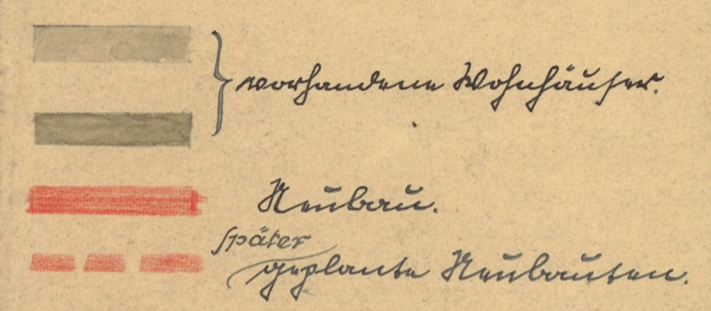 vorhandene Wohnhäuser.
Neubau.
später
geplante Neubauten.